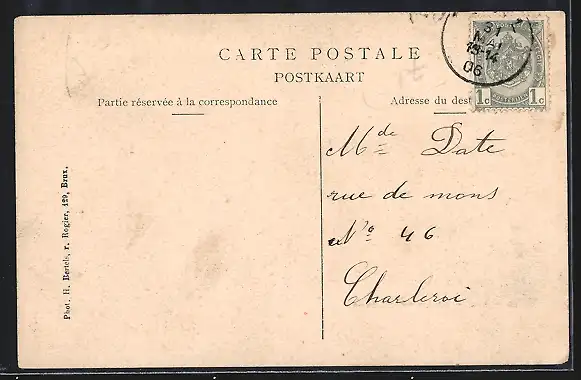 CARTE POSTALE
POSTKAART
Partie réservée à la correspondance
Adresse du dest
Mde Date
rue de mons
No 46
Charleroi
Phot. H. Bertels, r. Rogier, 129, Brux.
31
MAI
13-14
06
1c 1c